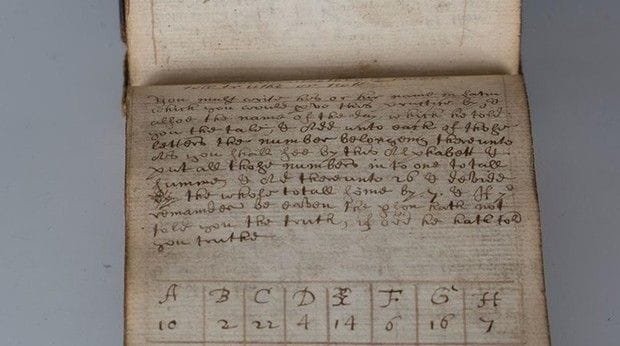 You must write his or her name in Latin
which you would prove this practice by, so
allsoe the name of the day which he told
you the tale, & Add unto each of those
letters the number belonging thereunto
As you shall see by this Alphabett &
put all those numbers into one totall
summe & Ad thereunto 26 & devide
the whole totall some by 7. & If ye
remainder be eaven the pson hath not
told you the truth, if odd he hath told
you truthe
A B C D E F G H
10 2 22 4 14 6 16 7